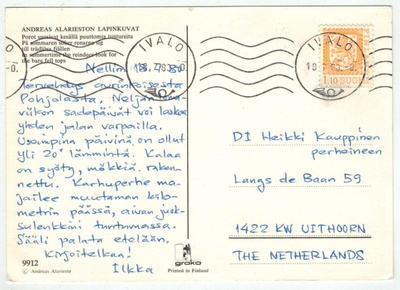 ANDREAS ALARIESTON LAPINKUVAT
Porot menivat kesällä puuttomiin tuntureihin
På sommaren söker renarna sig
till trädlösa fjällen
In summertime the reindeer look for
the bare fell tops
IVALO
IVALO
1.10 SUOMI
Nellim 18.7.80
Tervehdys aurinkoisesta
Pohjolasta. Neljän
viikon sadepäivät voi laskea
yhden jalan varpailla.
Useimpina päivinä on ollut
yli 20° lämmintä. Kalaa
on syöty, mökkiä raken-
nettu. Karhuperhe ma-
jailee muutaman kilo-
metrin päässä, aivan juok-
sulenkkini tuntumassa.
Sääli palata etelään.
Kirjoitelkaa!
Ilkka
DI Heikki Kauppinen
perheineen
Langs de Baan 59
1422 KW UITHOORN
THE NETHERLANDS
9912
© Andreas Alariesto
groko
Printed in Finland